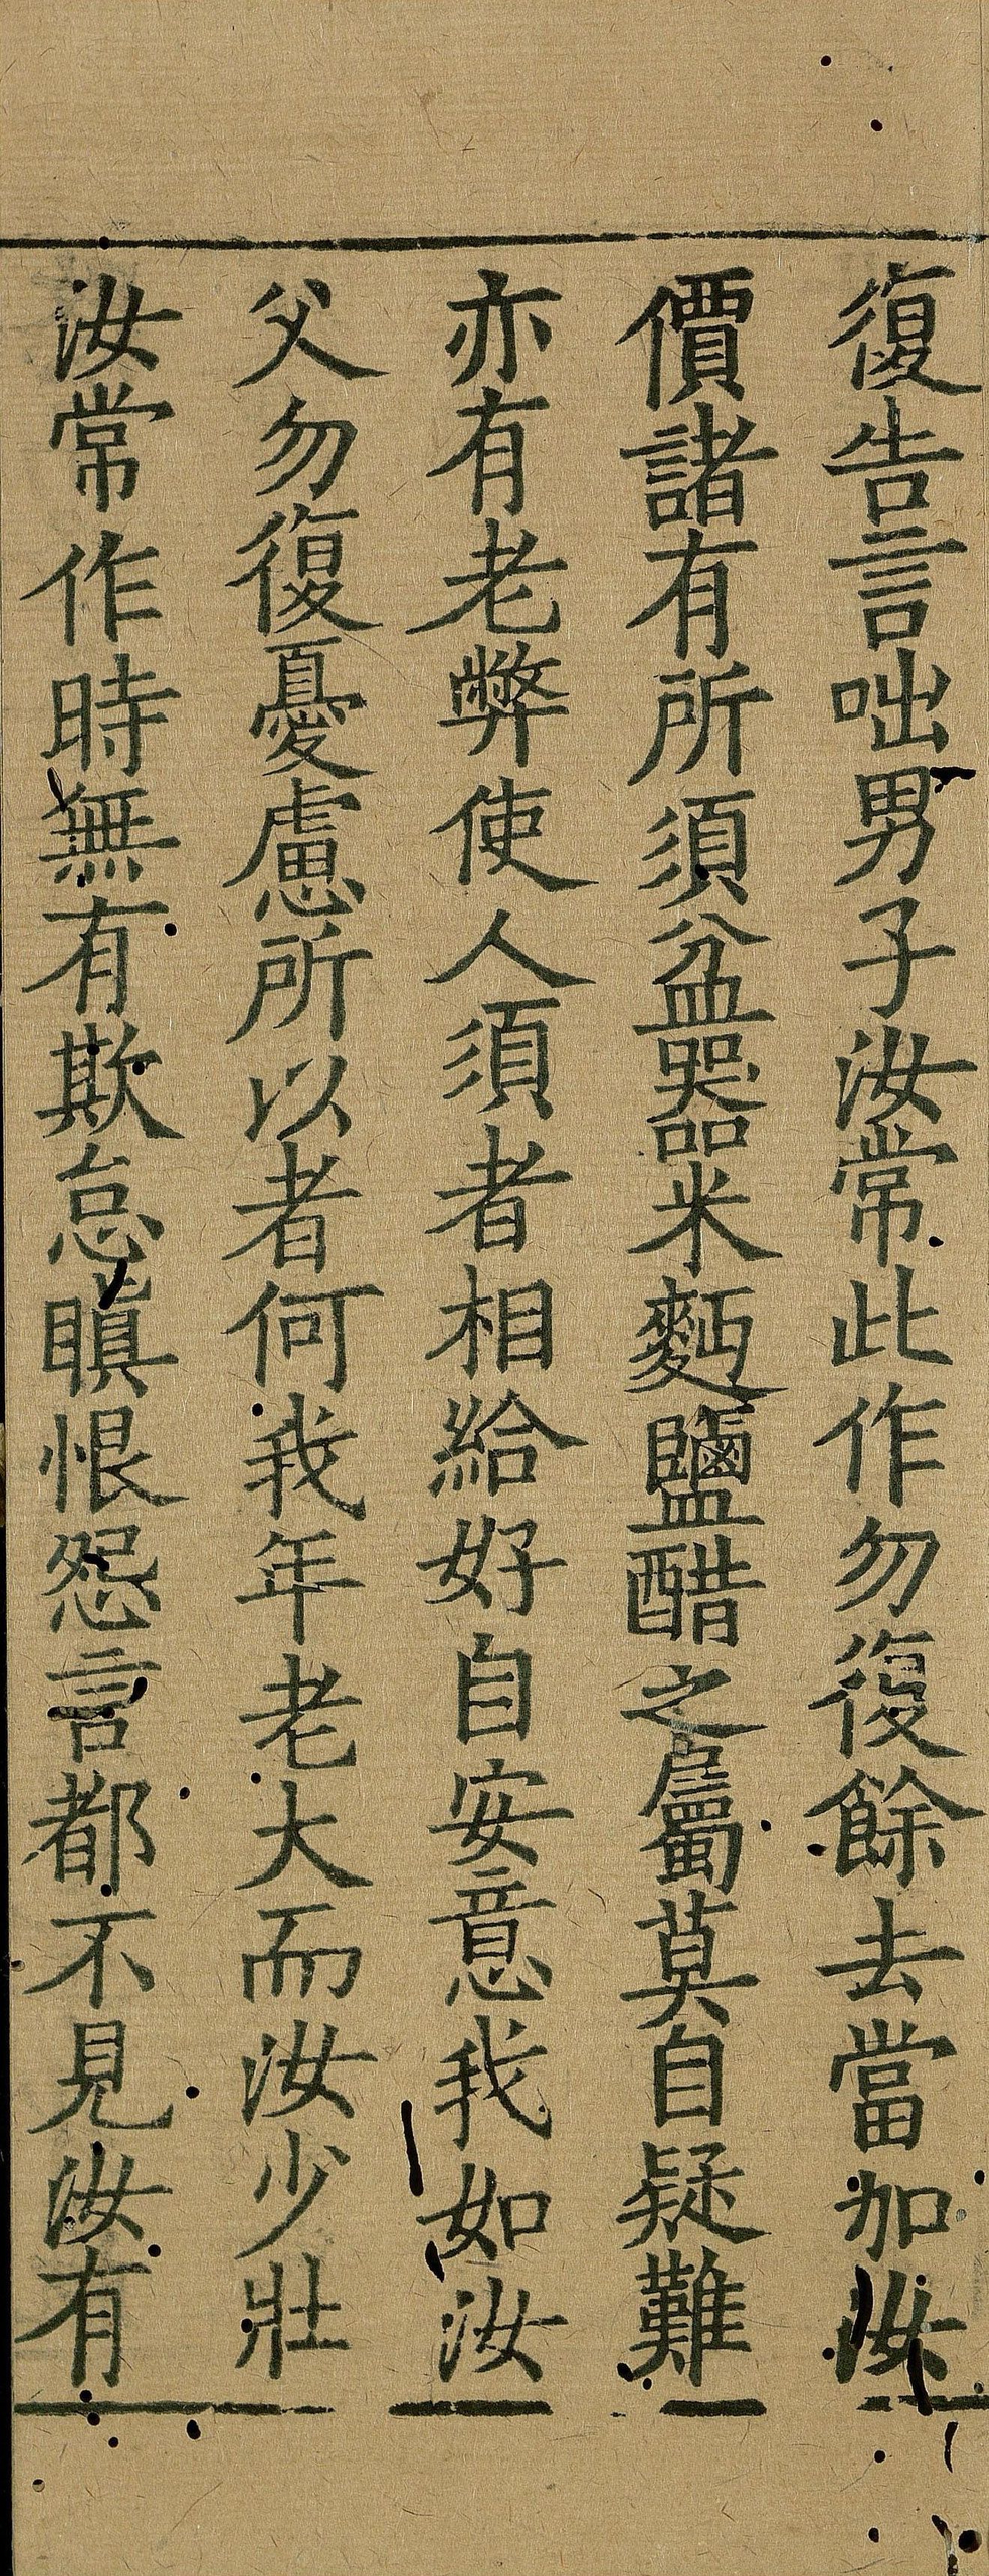 復告言咄男子汝常此作勿復餘去當加汝
價諸有所須盆器米麪鹽醋之屬莫自疑難
亦有老弊使人須者相給好自安意我如汝
父勿復憂慮所以者何我年老大而汝少壯
汝常作時無有欺怠瞋恨怨言都不見汝有